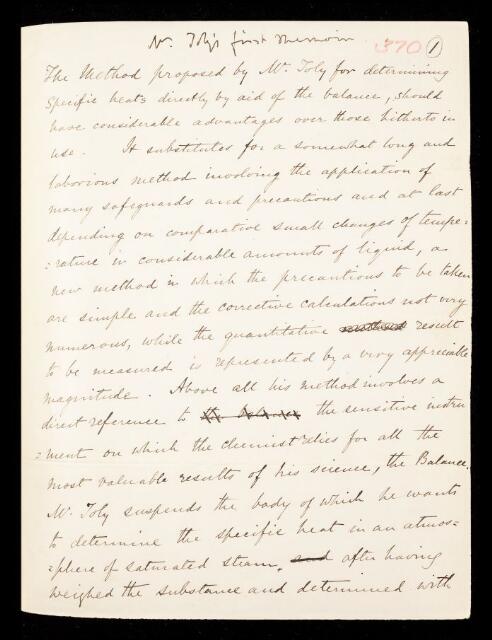 Mr. Joly's first Memoir
370 1
The Method proposed by Mr. Joly for determining
specific heats directly by aid of the balance, should
have considerable advantages over those hitherto in
use. It substitutes for a somewhat long and
laborious method involving the application of
many safeguards and precautions and at last
depending on comparative small changes of tempe=
=rature in considerable amounts of liquid, a
new method in which the precautions to be taken
are simple and the corrective calculations not very
numerous, while the quantitative result
to be measured is represented by a very appreciable
magnitude. Above all his method involves a
direct reference to the sensitive instru
=ment on which the chemist relies for all the
most valuable results of his science, the Balance.
Mr. Joly suspends the body of which he wants
to determine the specific heat in an atmos=
=phere of saturated steam, and after having
weighed the substance and determined with